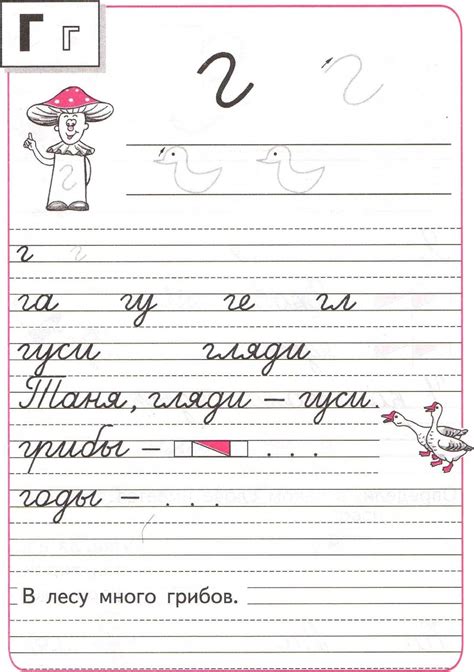 Г г
г
г г
га гу ге гл
гуси гляди
Таня, гляди – гуси.
грибы – . . .
годы – . . .
В лесу много грибов.